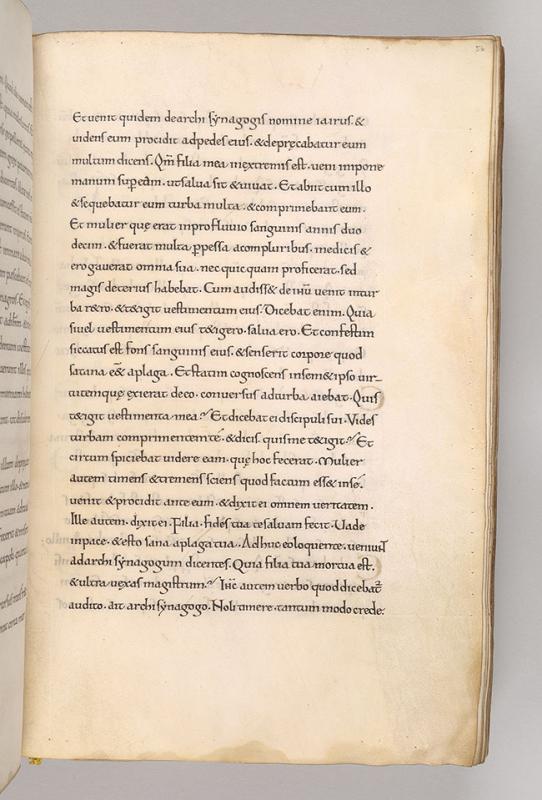 56
Et venit quidem de archi synagogis nomine iairus. &
videns eum procidit ad pedes eius. & depręcabatur eum
multum dicens. Qm̄ filia mea in extremis est. veni impone
manum sup eam. ut salua sit & uiuat. Et abiit cum illo
& sequebatur eum turba multa. & comprimebant eum.
Et mulier quę erat in profluuio sanguinis annis duo
decim. & fuerat multa ꝑpessa a compluribus. medicis &
erogauerat omnia sua. nec quicquam proficerat. sed
magis deterius habebat. Cum audiss& de ihū venit intur
ba r&ro. & t&igit uestimentum eius. Dicebat enim. Quia
si uel uestimentum eius t&igero. salua ero. Et confestim
siccatus est fons sanguinis eius. & senserit corpore quod
sanata eēt a plaga. Et statim cognoscens in sem& ipso uir-
tutem quę exierat de eo. conuersus ad turba aiebat. Quis
t&igit uestimenta mea? Et dicebat ei discipuli sui. Vides
turbam comprimentem te. & dicis. quis me t&igit? Et
circum spiciebat uidere eam. quę hoc fecerat. Mulier
autem timens & tremens sciens quod factum ess& in se.
venit & procidit ante eum. & dixit ei omnem veritatem.
Ille autem. dixit ei. Filia. fides tua te saluam fecit. Uade
in pace. & esto sana a plaga tua. Adhuc eo loquente. veniunt
ad archi synagogum dicentes. Quia filia tua mortua est.
& ultra vexas magistrum? Ihc autem verbo quod dicebat̄
audito. ait archi synagogo. Noli timere. tantum modo crede.